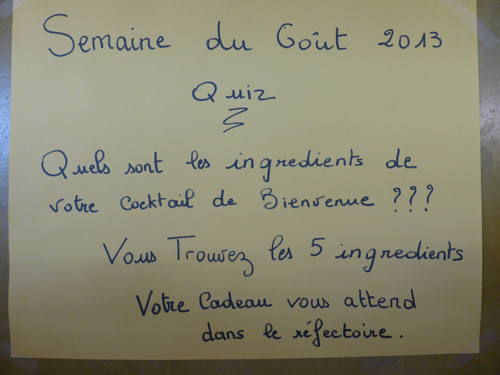 Semaine du Goût 2013
Quiz
Quels sont les ingredients de
votre cocktail de Bienvenue ???
Vous Trouvez les 5 ingredients
Votre Cadeau vous attend
dans le réfectoire.